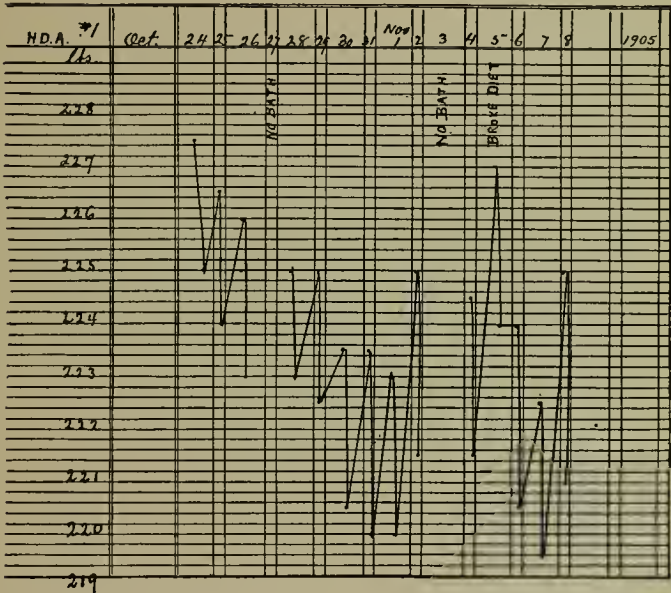 H.D.A. #1 Oct. 24 25 26 27 28 29 30 31 Nov 1 2 3 4 5 6 7 8 1905
lbs
228
NO BATH
NO BATH
BROKE DIET
227
226
225
224
223
222
221
220
219